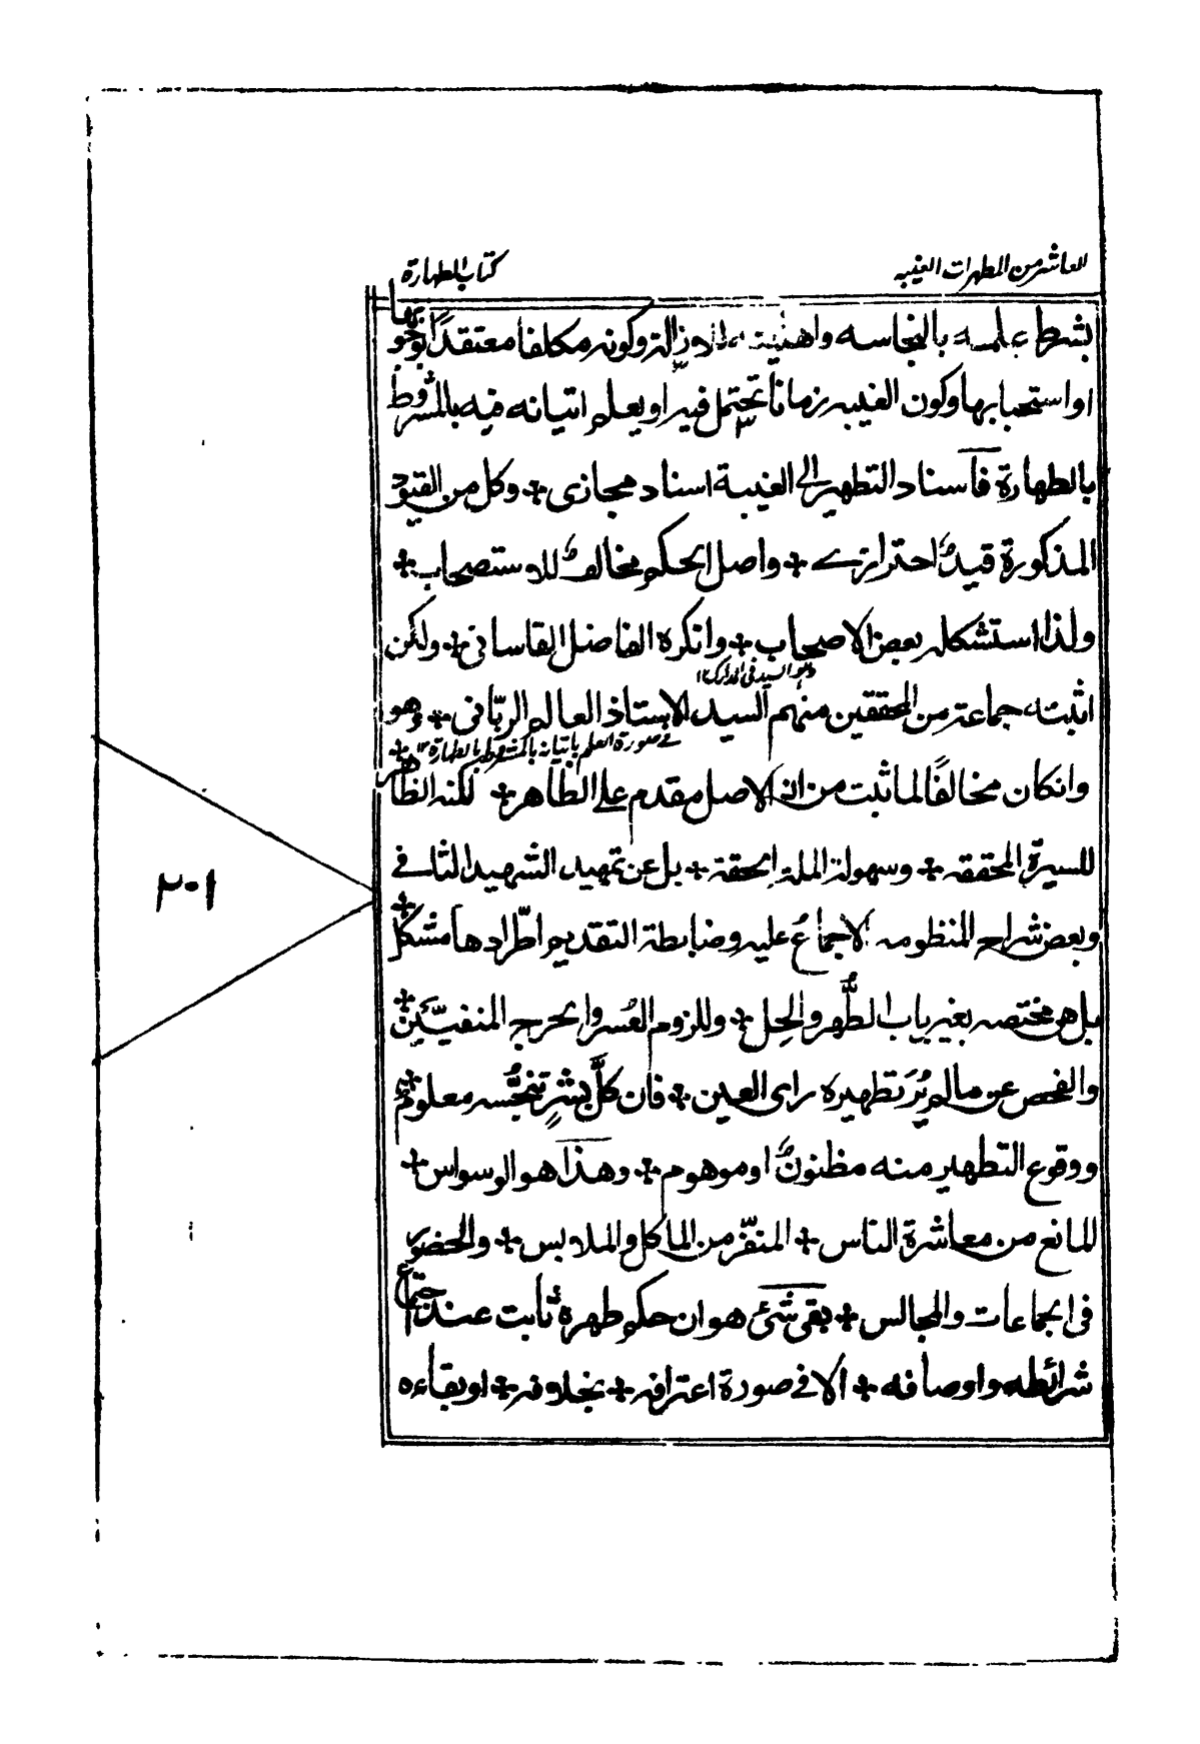 العاشر من المطهرات الغيبه
كتاب الطهارة
بشرط علمه بالنجاسه واهليته للازالة وكونه مكلفا معتقدًا لوجوبها
او استحبابها وكون الغيبه زمانا تحتمل فيه او يعلم اتيانه فيه بالمشروط
بالطهارة فاسناد التطهير الى الغيبة اسناد مجازى + وكل من القيود
المذكورة قيدٌ احترازے + واصل الحكم مخالفٌ للاستصحاب +
ولذا استشكله بعض الاصحاب + وانكره الفاضل القاسانى + ولكن
وهو السيد فى المدارك ١٢
اثبته جماعة من المحققين منهم السيد الاستاذ العالم الربّانى + وهو
فے صورة العلم باتيانه بالمشروط بالطهارة ١٢
وانكان مخالفًا لما ثبت من ان الاصل مقدم على الظاهر + لكنه الظاهر +
للسيرة المحققه + وسهولة الملة الحقة + بل عن تمهيد الشهيد الثانے
وبعض شراح المنظومه الاجماعُ عليه وضابطة التقديم اطّرادها مشكل +
بل هى مختصه بغير باب الطُّهر والحِل + وللزوم العُسر والحرج المنفيّين +
والفحص عن مالم يُرَ تطهيره راى العين + فان كلَّ بشرٍ تنجُّسه معلومٌ +
ووقوع التطهير منه مظنونٌ او موهوم + وهذا هو الوسواس +
المانع من معاشرة الناس + المنفّر من الماكل والملابس + والحضور
فى الجماعات والمجالس + بقى شئ هو ان حكم طهره ثابت عند اجتماع
شرائطه واوصافه + الا فے صورة اعترافه + بخلافه + او بقاءه
٢٠١